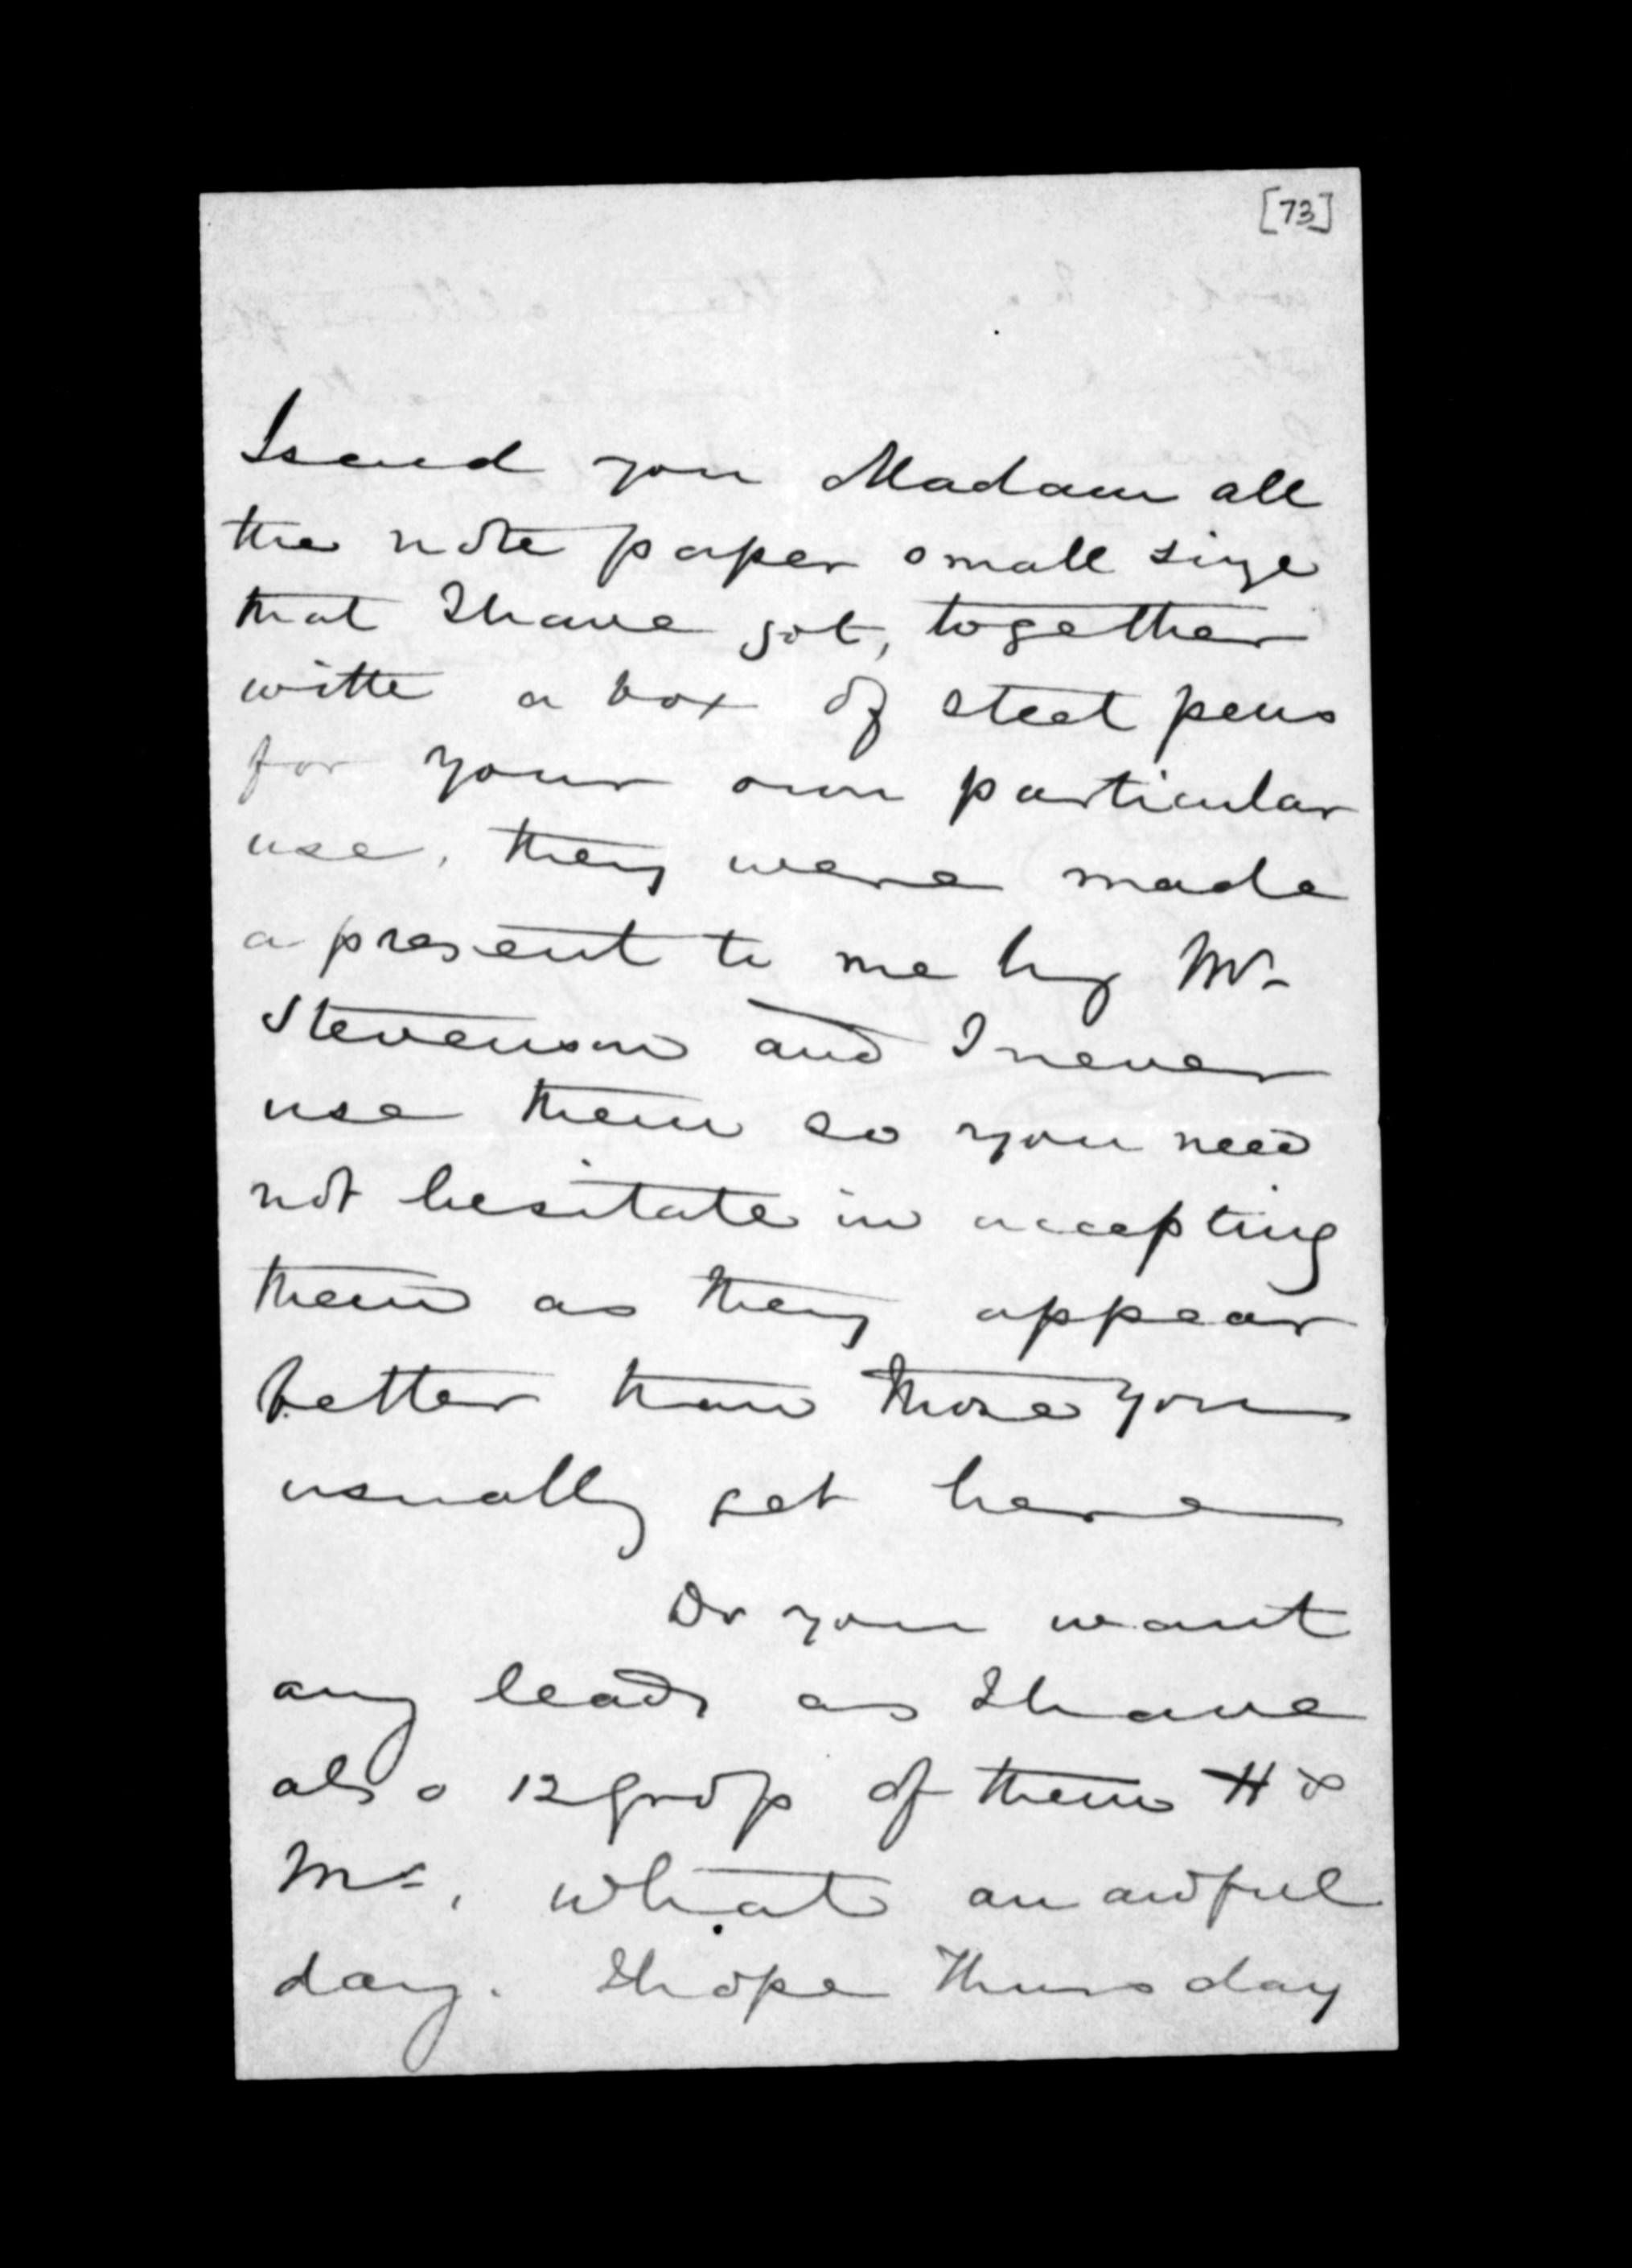 [73]
I send you Madam all
the note paper small size
that I have got, together
with a box of steel pens
for your own particular
use, they were made
a present to me by Mr
Stevenson and I never
use them so you need
not hesitate in accepting
them as they appear
better than those you
usually get here
Do you want
any leads as I have
also 12 grofs of them H &
M s, what an awful
day. I hope Thursday